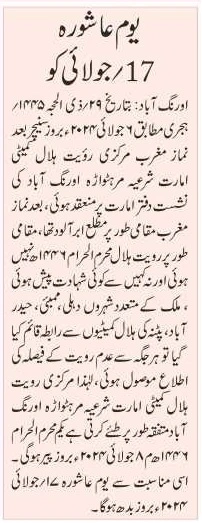 یوم عاشورہ
17/جولائی کو
اورنگ آباد: بتاریخ ۲۹/ذی الحجہ ۱۴۴۵/
ہجری مطابق ۶ جولائی ۲۰۲۴ء بروز سنیچر بعد
نماز مغرب مرکزی رؤیت ہلال کمیٹی
امارت شرعیہ مرہٹواڑہ اورنگ آباد کی
نشست دفتر امارت پر منعقد ہوئی، بعد نماز
مغرب مقامی طور پر مطلع ابر آلود تھا، مقامی
طور پر رویت ہلال محرم الحرام ۱۴۴۶ھ نہیں
ہوئی اور نہ کہیں سے کوئی شہادت پیش ہوئی
، ملک کے متعدد شہروں دہلی، ممبئی، حیدر
آباد، پٹنہ کی ہلال کمیٹیوں سے رابطہ قائم کیا
گیا تو ہر جگہ سے عدم رویت کے فیصلہ کی
اطلاع موصول ہوئی، لہٰذا مرکزی رویت
ہلال کمیٹی امارت شرعیہ مرہٹواڑہ اورنگ
آباد متفقہ طور پر طئے کرتی ہے یکم محرم الحرام
۱۴۴۶ھ م ۸ جولائی ۲۰۲۴ء بروز پیر ہوگی۔
اسی مناسبت سے یوم عاشورہ ۱۷/جولائی
۲۰۲۴ء بروز بدھ ہوگا۔